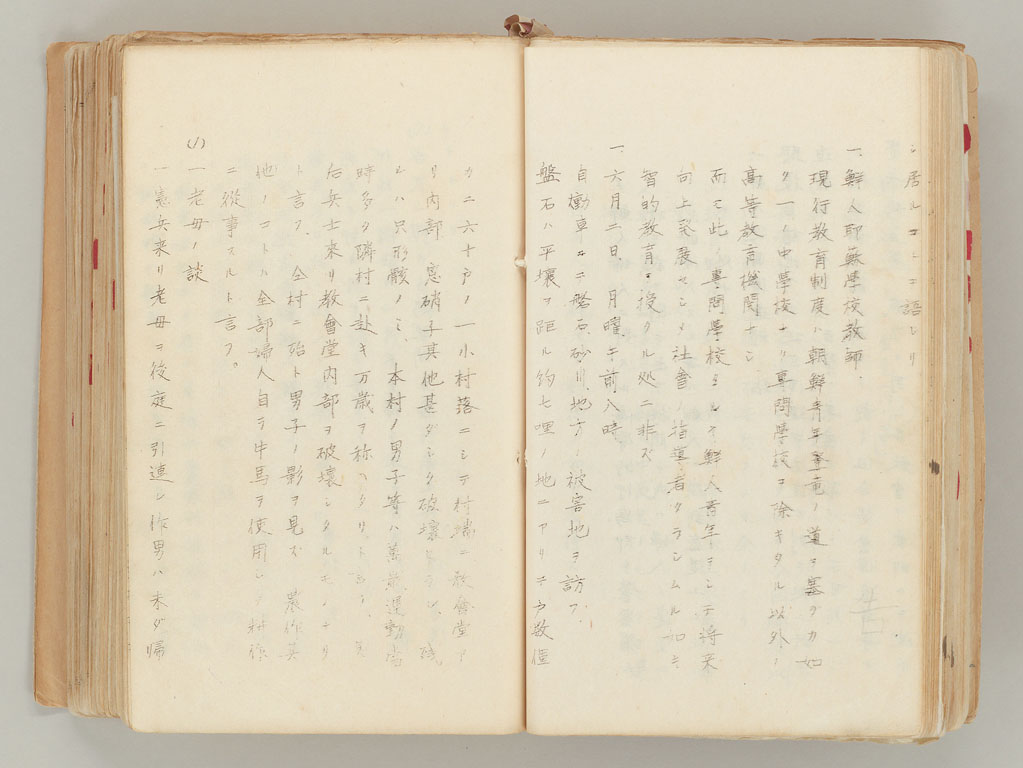 シ居ルコトヲ語レリ
一、鮮人耶蘇學校教師、
現行教育制度ハ朝鮮青年登竜ノ道ヲ塞グカ如
ク一ノ中學校ナリ専門學校ヲ除キタル以外ノ
高等教育機関ナシ
而モ此ノ専門學校タルヤ鮮人青年ヲシテ将来
向上発展セシメ社會ノ指導者タラシムル如キ
智的教育ヲ授クル処ニ非ズ
一、六月二日、月曜、午前八時
自働車ニテ盤石、砂川地方ノ被害地ヲ訪フ、
盤石ハ平壌ヲ距ル約七哩ノ地ニアリテ戸数僅
カニ六十戸ノ一小村落ニシテ村端ニ教會堂ア
リ内部、窓硝子其他甚ダシク破壊セラレ、残
ルハ只形骸ノミ、本村ノ男子等ハ萬歳運動當
時多ク隣村ニ赴キ万歳ヲ称ヘタリト言フ、其
后兵士来リ教會堂内部ヲ破壊シタルモノナリ
ト言フ、全村ニ殆ト男子ノ影ヲ見ズ、農作其
他ノコトハ全部婦人自ラ牛馬ヲ使用シテ耕作
ニ従事スルト言フ。
(ノ)一老母ノ談
一憲兵来リ老母ヲ後庭ニ引連レ作男ハ未ダ帰